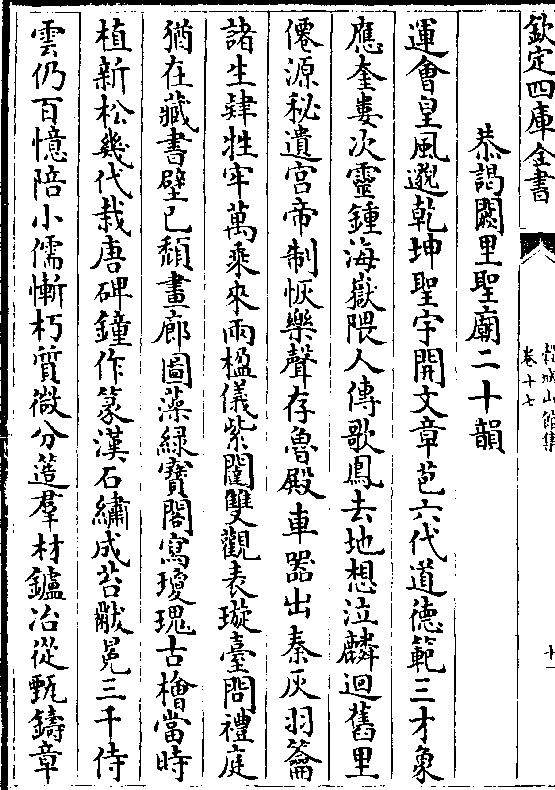 欽定四庫全書
卷十七
十一
恭謁闕里聖廟二十韻
運會皇風邈乾坤聖宇開文章苞六代道德範三才象
應奎婁次靈鍾海嶽隈人傳歌鳳去地想泣麟迴舊里
僊源秘遺宫帝制恢樂聲存魯殿車器出秦灰羽籥
諸生肄牲牢萬乘來兩楹儀紫闥雙觀表璇臺問禮庭
猶在藏書壁已頽畫廊圖藻緑寳閣寫瓊瑰古檜當時
植新松幾代栽唐碑鐘作篆漢石繡成苔黻冕三千侍
雲仍百憶陪小儒慚朽質微分簉羣材鑪冶從甄鑄章